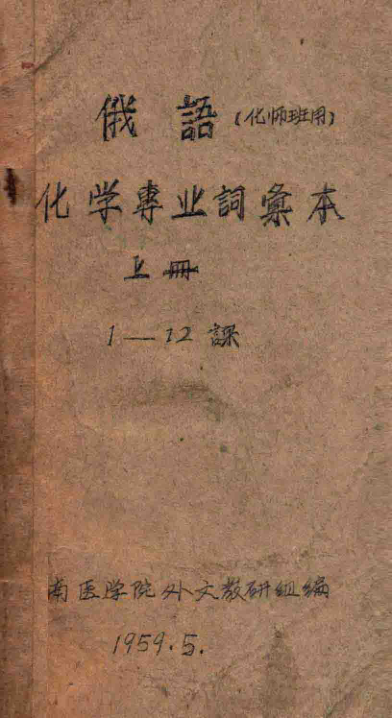 俄語（化师班用）
化学專业詞彙本
上冊
1—12課
南医学院外文教研组编
1959.5.